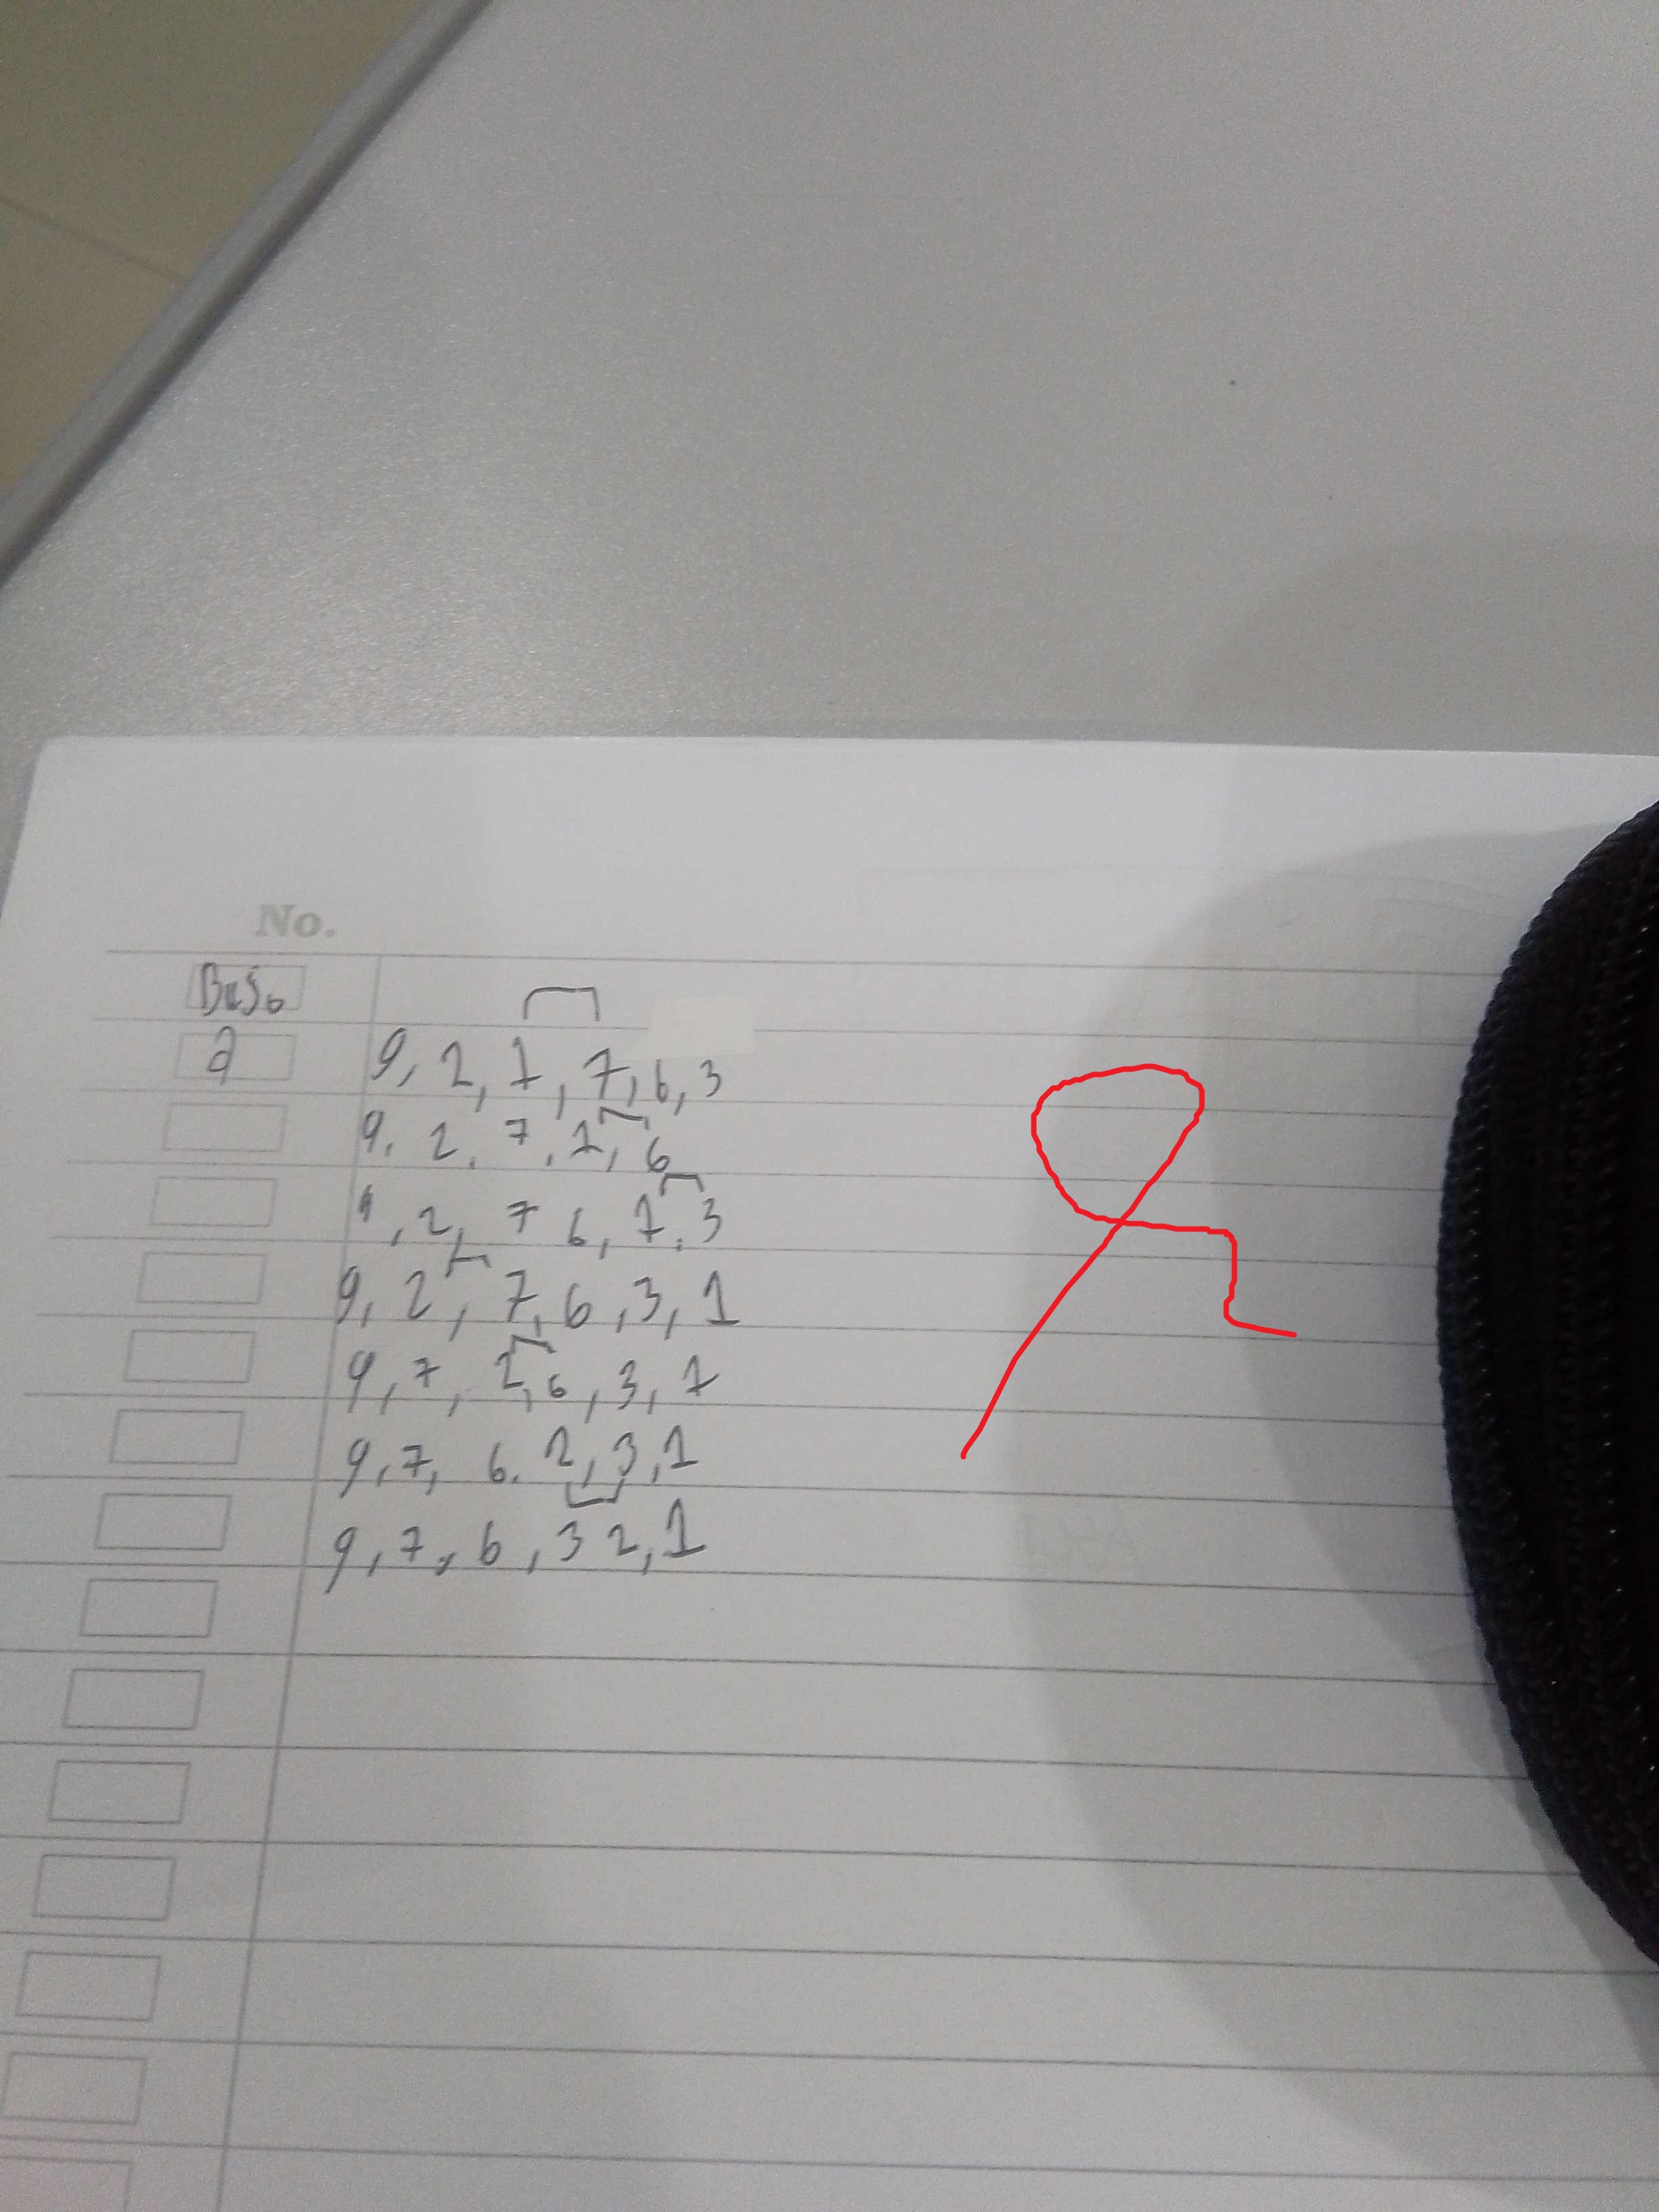 No.
a
9, 2, 1, 7, 6, 3
9, 2, 7, 1, 6
9, 2, 7 6, 1, 3
9, 2, 7, 6, 3, 1
9, 7, 2, 6, 3, 1
9, 7, 6, 2, 3, 1
9, 7, 6, 3 2, 1